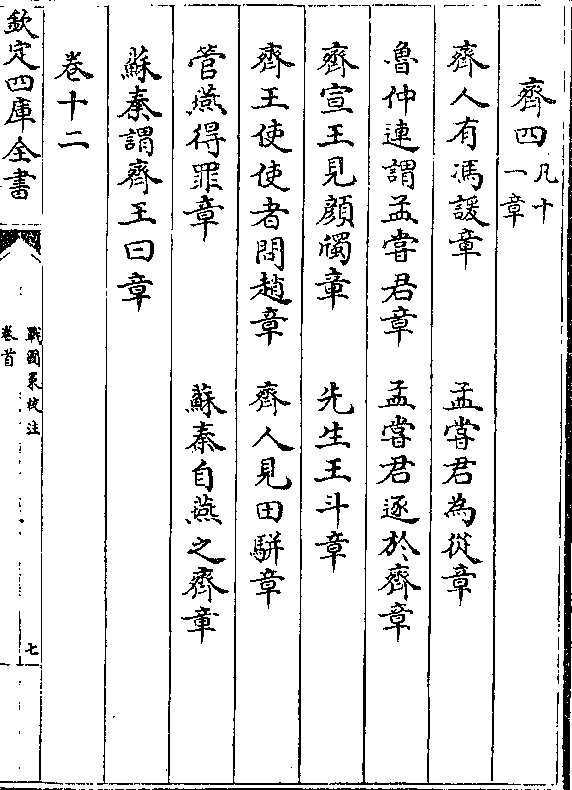 齊四凡十一章
齊人有馮諼章　孟嘗君為從章
魯仲連謂孟嘗君章　孟嘗君逐於齊章
齊宣王見顔斶章　先生王斗章
齊王使使者問趙章　齊人見田駢章
管燕得罪章　蘇秦自燕之齊章
蘇秦謂齊王曰章
卷十二
欽定四庫全書
戰國策校注
卷首
七